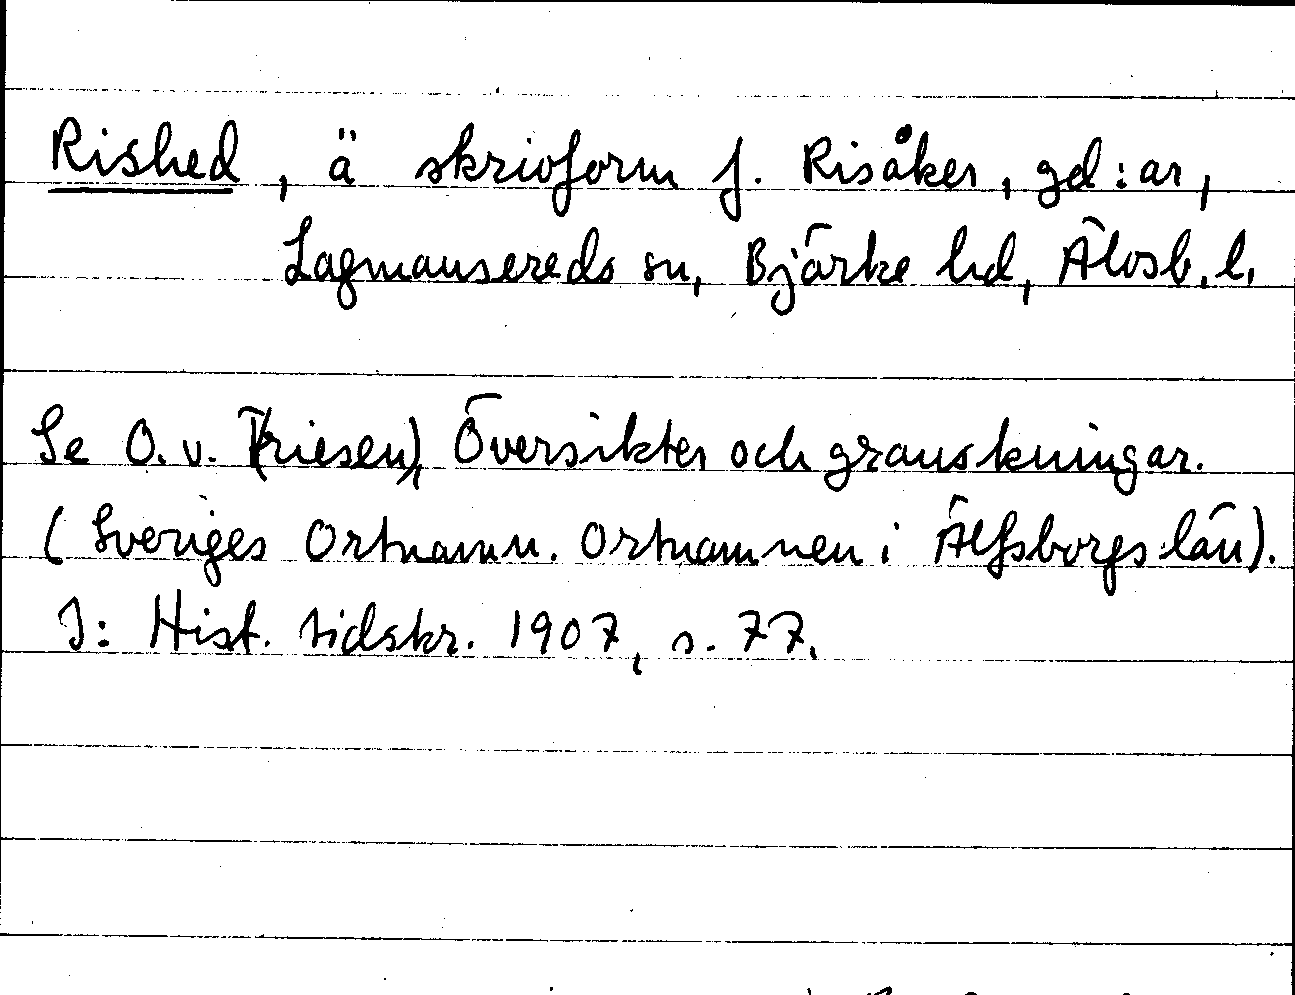 Rished, ä skrivform f. Risåker, gd:ar,
Lagmansereds sn, Bjärke hd, Älvsb. l.
Se O. v. F(riesen), Översikter och granskningar.
(Sveriges Ortnamn. Ortnamnen i Älfsborgs län).
I: Hist. tidskr. 1907, s. 77.